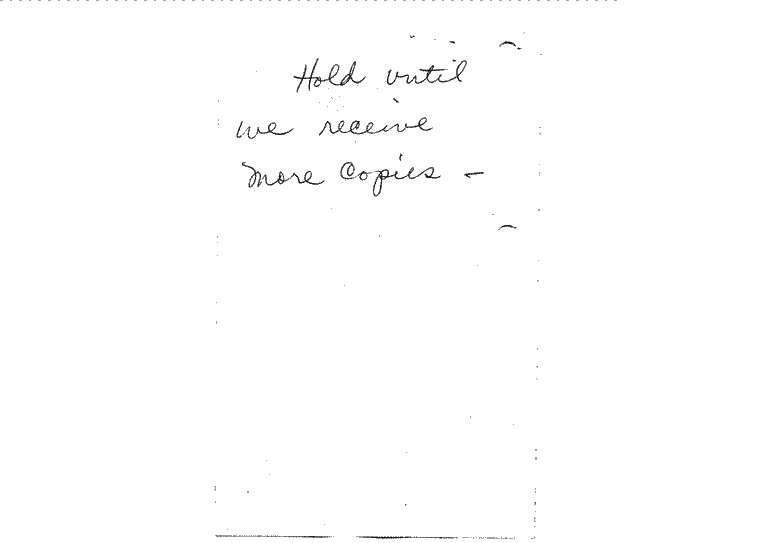 Hold until
we receive
more Copies –